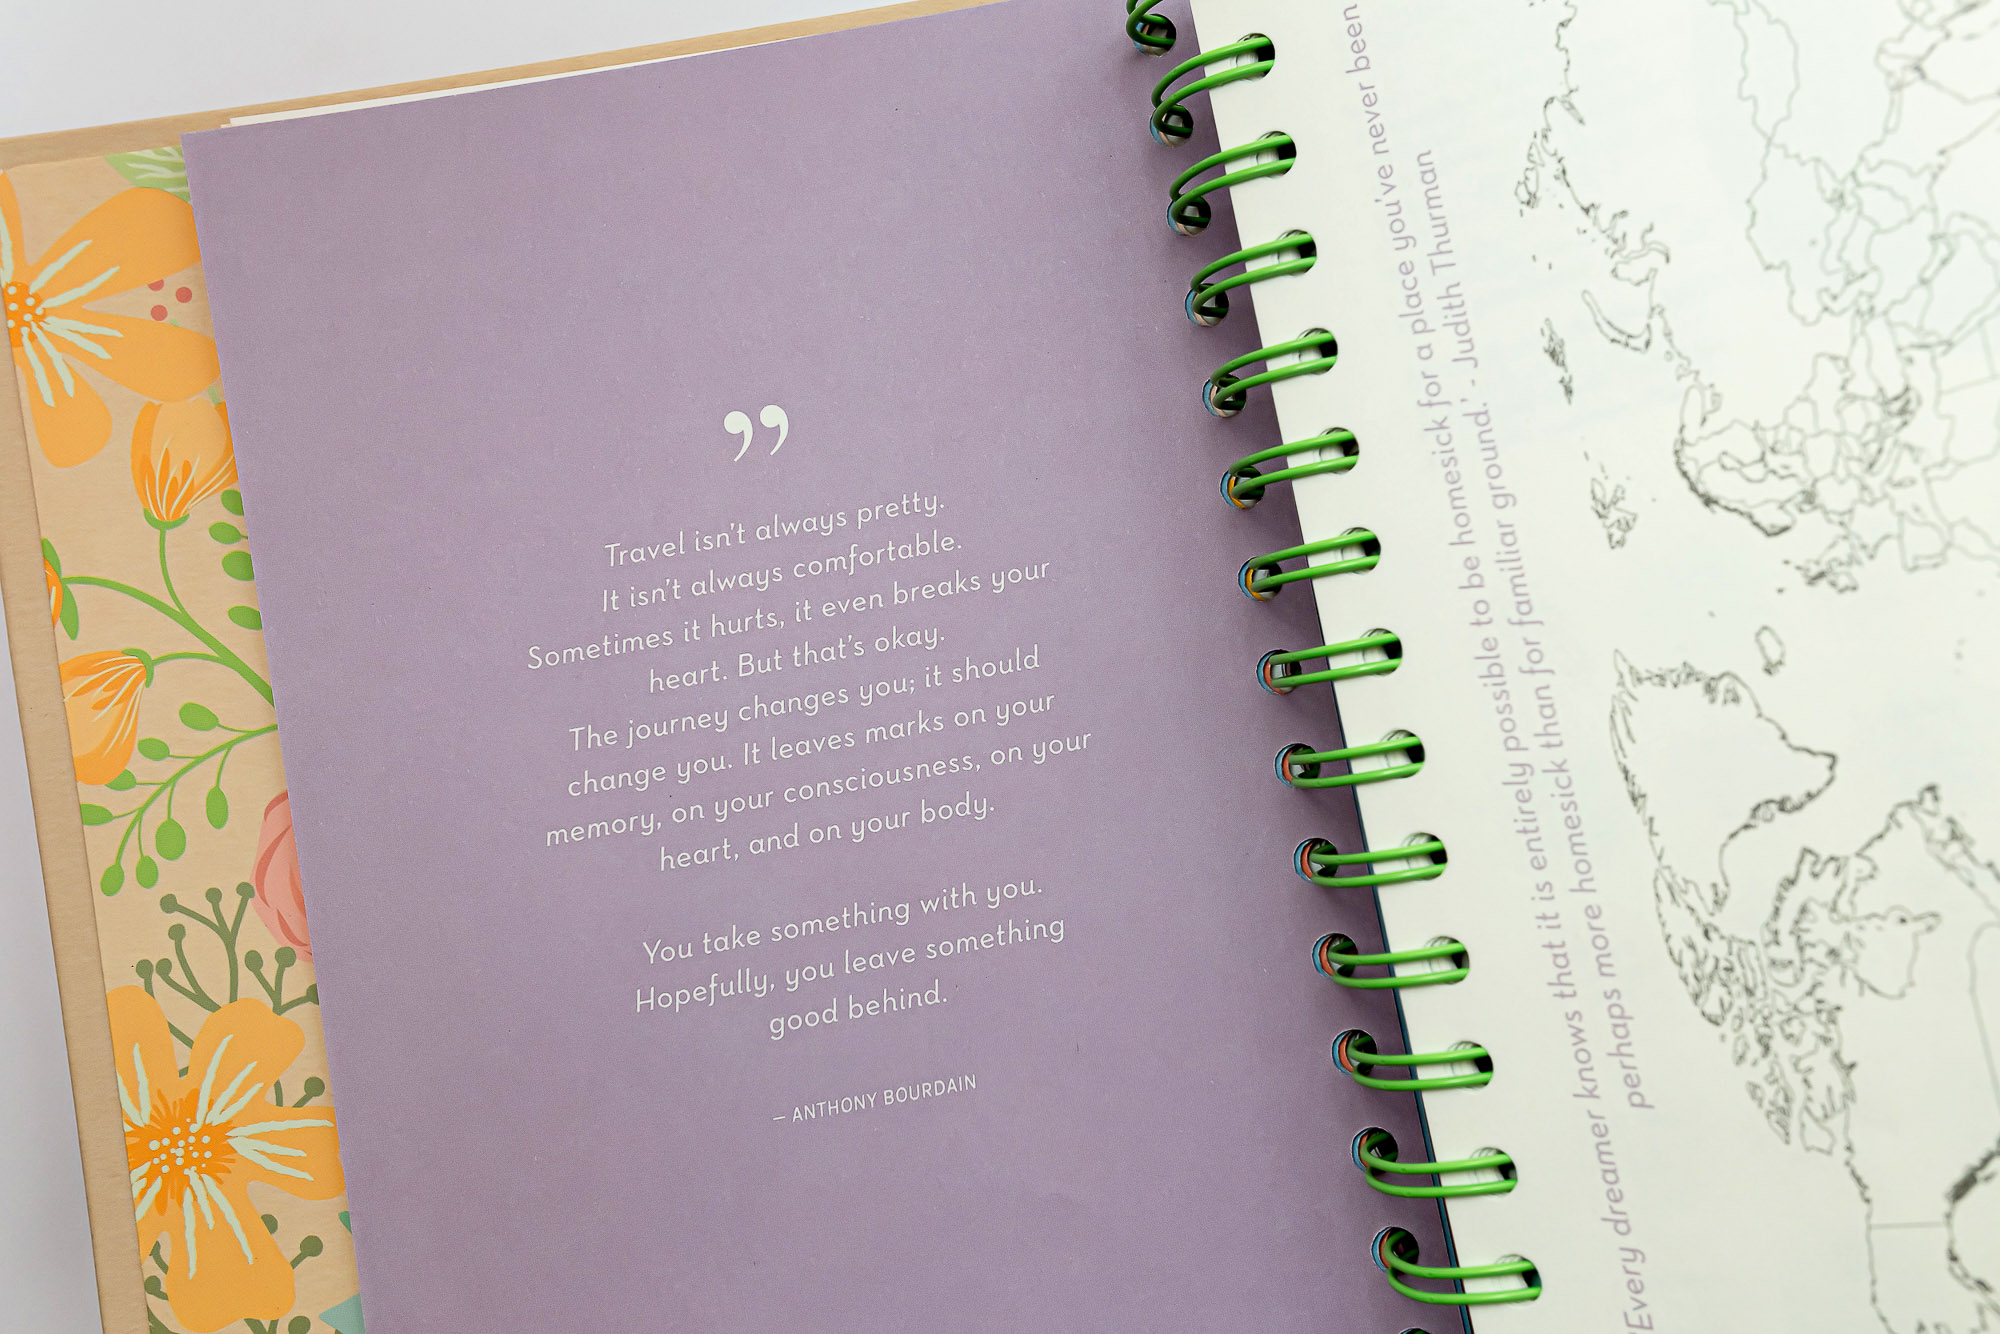 ”
Travel isn't always pretty.
It isn't always comfortable.
Sometimes it hurts, it even breaks your
heart. But that's okay.
The journey changes you; it should
change you. It leaves marks on your
memory, on your consciousness, on your
heart, and on your body.
You take something with you.
Hopefully, you leave something
good behind.
– ANTHONY BOURDAIN
'Every dreamer knows that it is entirely possible to be homesick for a place you've never been
perhaps more homesick than for familiar ground.' - Judith Thurman